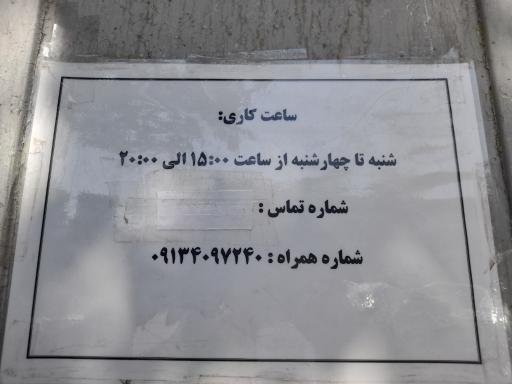 ساعت کاری:
شنبه تا چهارشنبه از ساعت ۱۵:۰۰ الی ۲۰:۰۰
شماره تماس :
شماره همراه : ۰۹۱۳۴۰۹۷۲۴۰